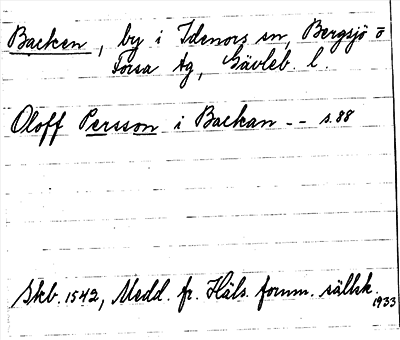 Backen, by i Idenors sn, Bergsjö o
Forsa tg, Gävleb. l.
Oloff Persson i Backan -- s. 88
Skb. 1542, Medd. fr. Häls. fornm. sällsk.
1933